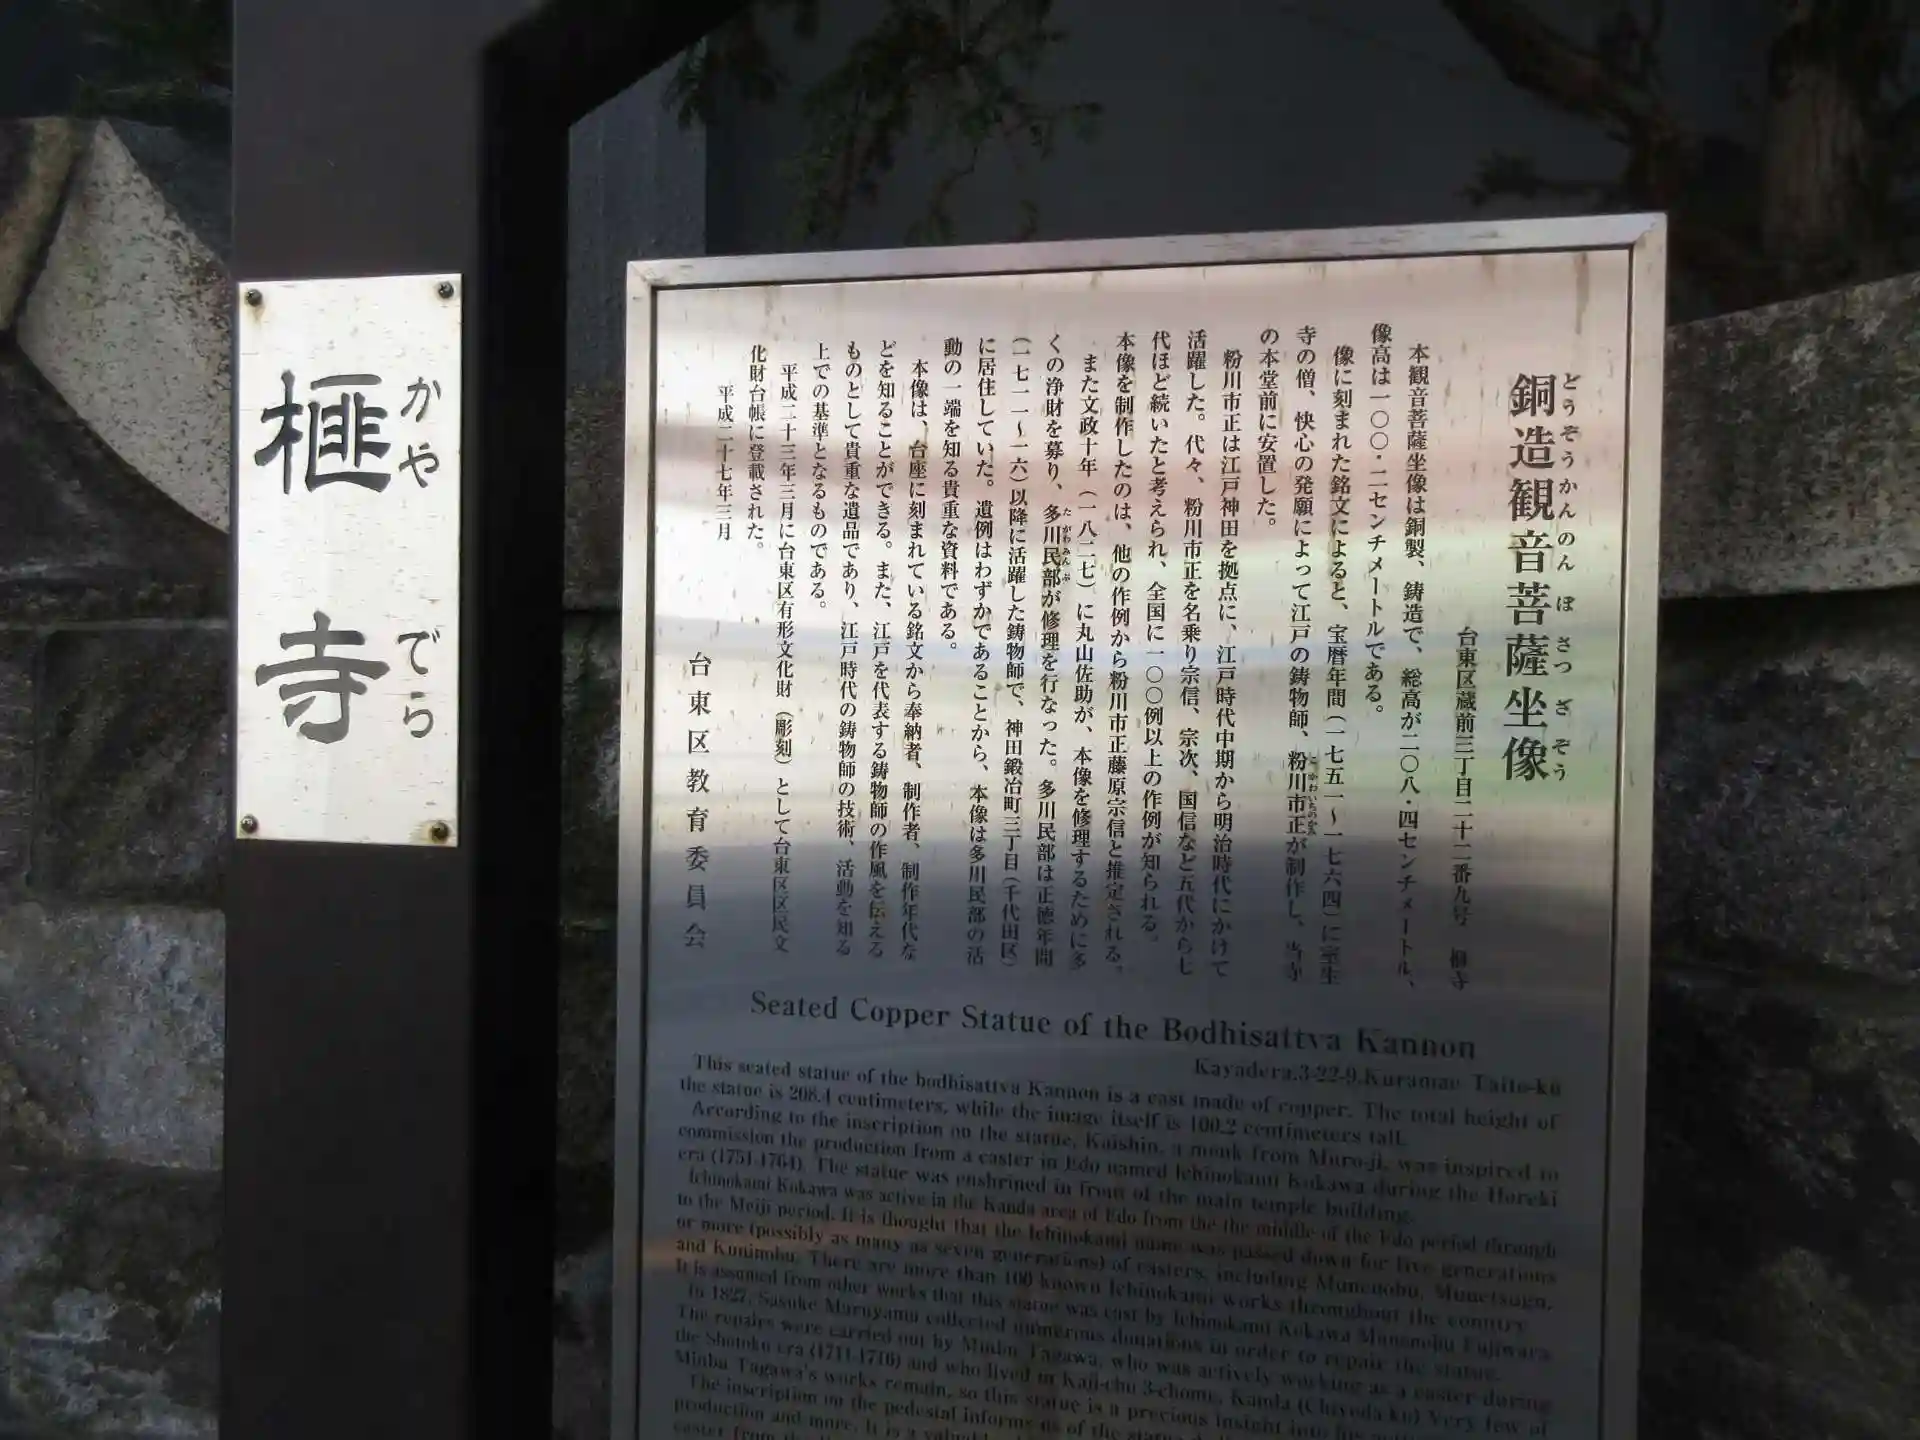 榧寺
かやでら
銅造観音菩薩坐像
どうぞうかんのんぼさつざぞう
台東区蔵前三丁目二十二番九号 榧寺
本観音菩薩坐像は銅製、鋳造で、総高が二〇八・四センチメートル、
像高は一〇〇・二センチメートルである。
像に刻まれた銘文によると、宝暦年間(一七五一～一七六四)に室生
寺の僧、快心の発願によって江戸の鋳物師、粉川市正が制作し、当寺
の本堂前に安置した。
粉川市正は江戸神田を拠点に、江戸時代中期から明治時代にかけて
活躍した。代々、粉川市正を名乗り宗信、宗次、国信など五代から七
代ほど続いたと考えられ、全国に一〇〇例以上の作例が知られる。
本像を制作したのは、他の作例から粉川市正藤原宗信と推定される。
また文政十年(一八二七)に丸山佐助が、本像を修理するために多
くの浄財を募り、多川民部が修理を行なった。多川民部は正徳年間
たがわみんぶ
(一七一一～一六)以降に活躍した鋳物師で、神田鍛冶町三丁目(千代田区)
に居住していた。遺例はわずかであることから、本像は多川民部の活
動の一端を知る貴重な資料である。
本像は、台座に刻まれている銘文から奉納者、制作者、制作年代な
どを知ることができる。また、江戸を代表する鋳物師の作風を伝える
ものとして貴重な遺品であり、江戸時代の鋳物師の技術、活動を知る
上での基準となるものである。
平成二十三年三月に台東区有形文化財(彫刻)として台東区区民文
化財台帳に登載された。
平成二十七年三月
台東区教育委員会
Seated Copper Statue of the Bodhisattva Kannon
Kayadera,3-22-9,Kuramae Taito-ku
This seated statue of the bodhisattva Kannon is a cast made of copper. The total height of
the statue is 208.4 centimeters, while the image itself is 100.2 centimeters tall.
According to the inscription on the statue, Kaishin, a monk from Muro-ji, was inspired to
commission the production from a caster in Edo named Ichinokami Kokawa during the Horeki
era (1751-1764). The statue was enshrined in front of the main temple building.
Ichinokami Kokawa was active in the Kanda area of Edo from the the middle of the Edo period through
to the Meiji period. It is thought that the Ichinokami name was passed down for five generations
or more (possibly as many as seven generations) of casters, including Munenobu, Munetsugu,
and Kuninobu. There are more than 100 known Ichinokami works throughout the country.
It is assumed from other works that this statue was cast by Ichinokami Kokawa Munenobu Fujiwara.
In 1827, Sasuke Maruyama collected numerous donations in order to repair the statue.
The repairs were carried out by Minbu Tagawa, who was actively working as a caster during
the Shotoku era (1711-1716) and who lived in Kaji-cho 3-chome, Kanda (Chiyoda-ku) Very few of
Minbu Tagawa's works remain, so this statue is a precious insight into his
The inscription on the pedestal informs us of the
production and more. It is a
caster from the